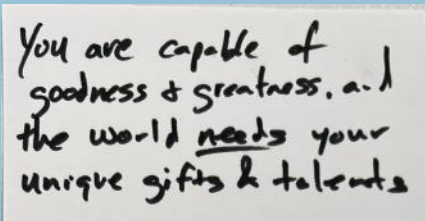 You are capable of
goodness & greatness, and
the world needs your
unique gifts & talents